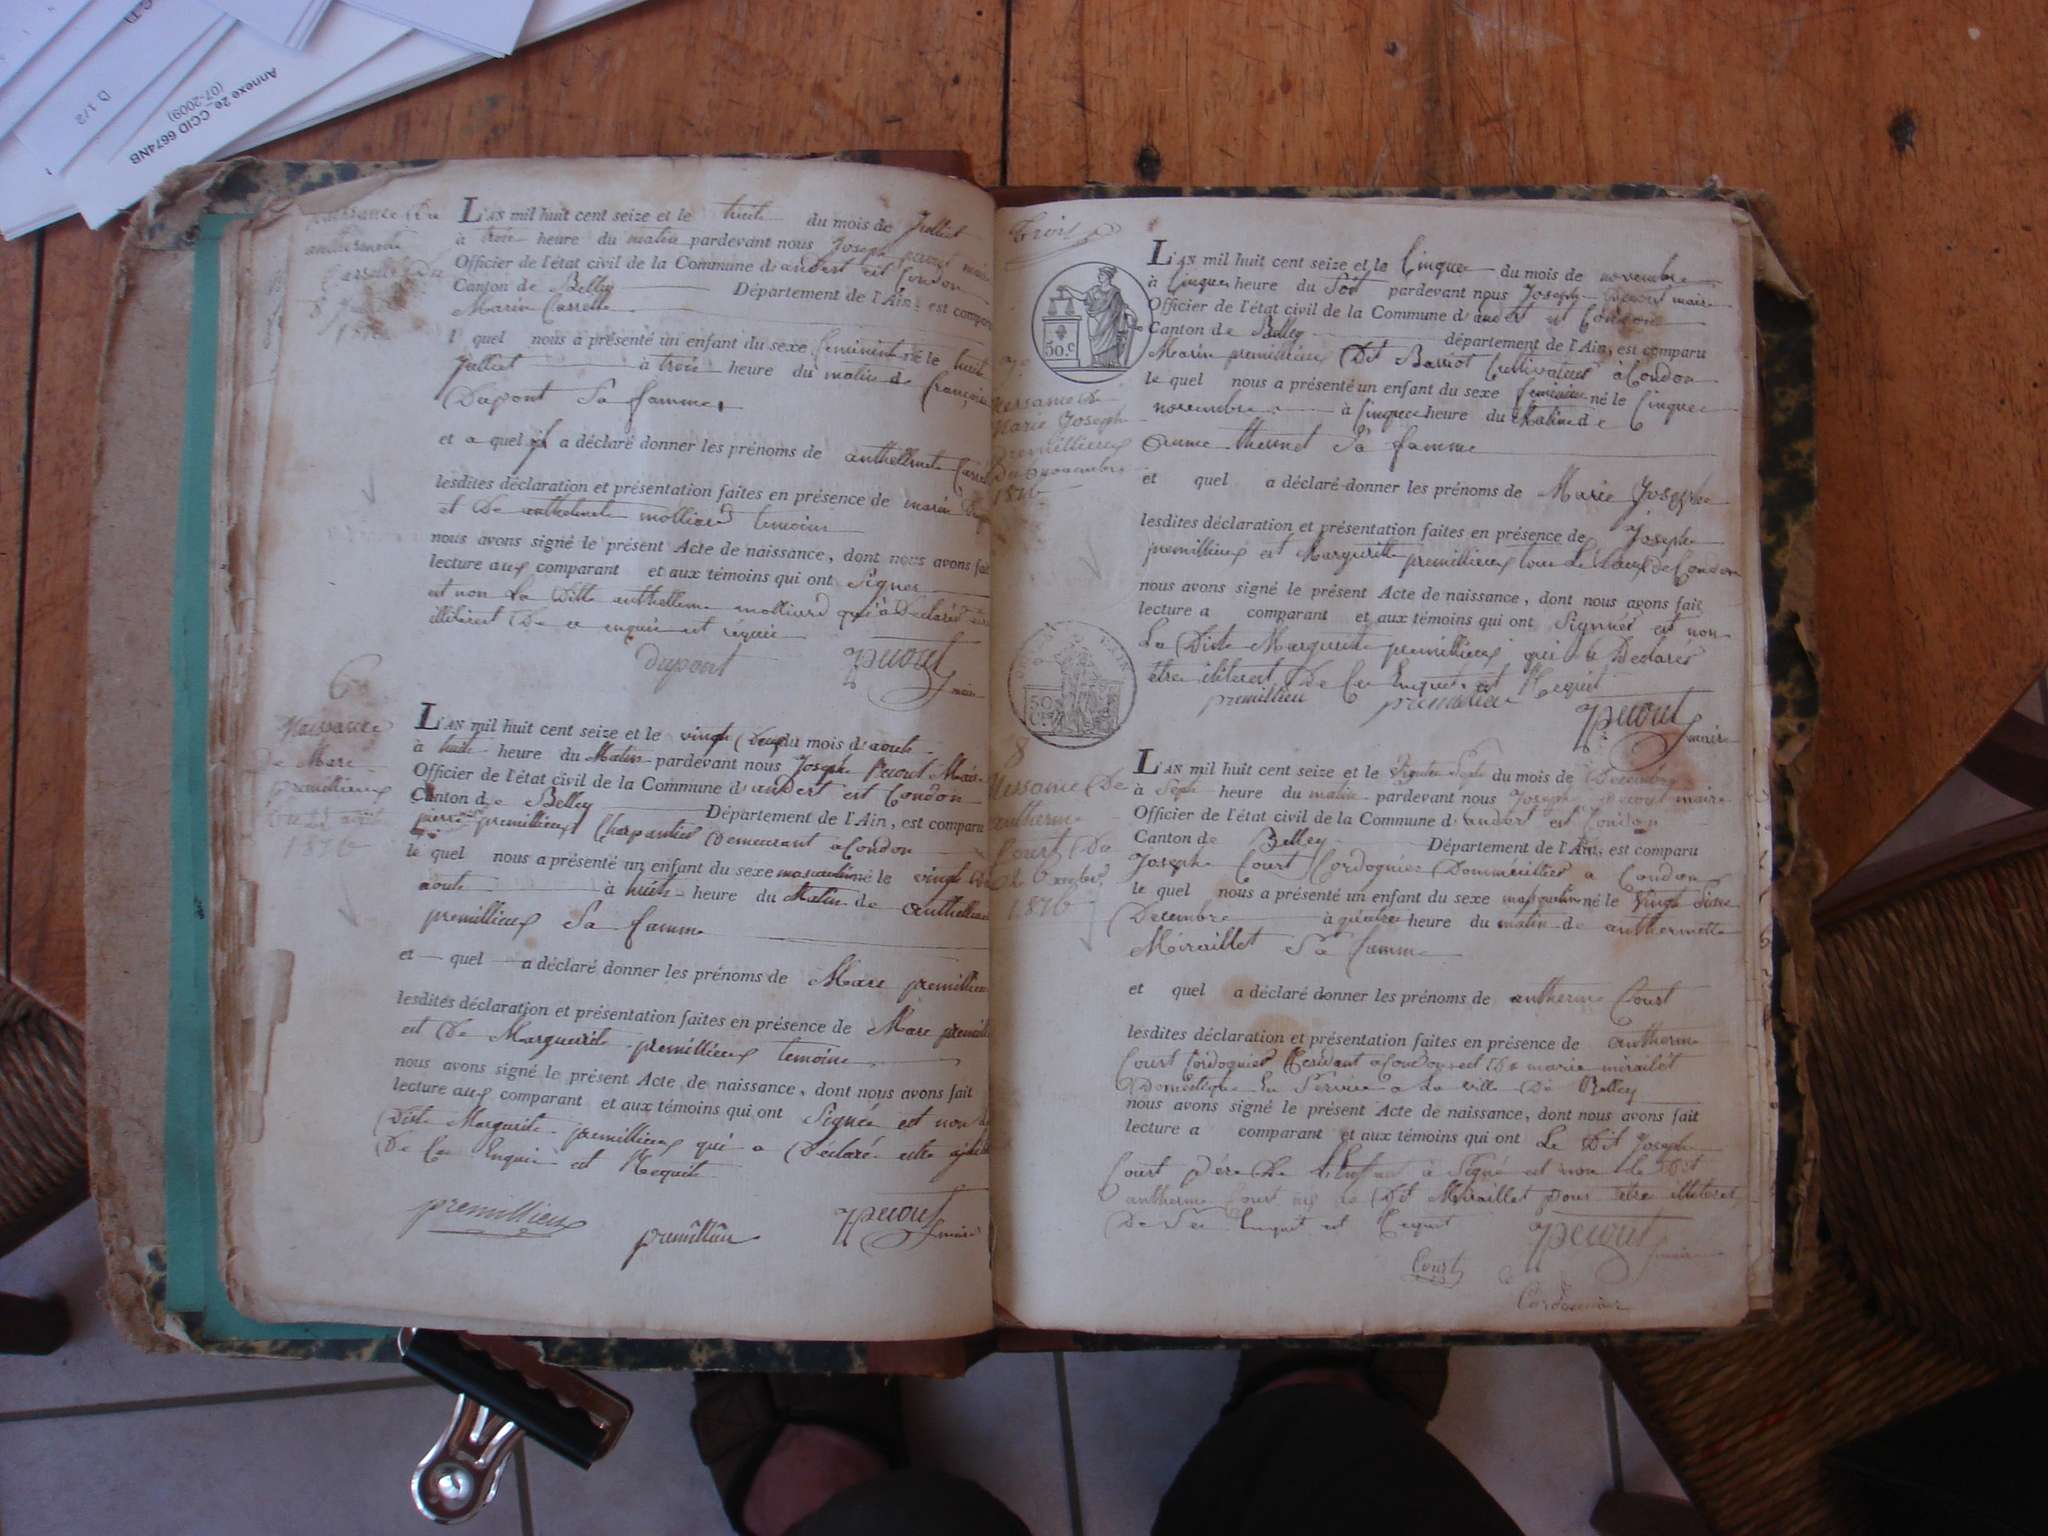 Annexe 2e_CCID 6674NB
(07-2009)
D 1/2
L'AN mil huit cent seize et le huit du mois de Julliet
à trois heure du matin pardevant nous Joseph pecout maire
Officier de l'état civil de la Commune d'andert est Condon
Canton de Belley Département de l'Ain, est comparu
Marin Carrelle
l quel nous a présenté un enfant du sexe feminin né le huit
Julliet à trois heure du matin de françoise
Dupont Sa famme
et a quel il a déclaré donner les prénoms de anthellmette
lesdites déclaration et présentation faites en présence de marin
et De anthelmette molliard temoins
nous avons signé le présent Acte de naissance, dont nous avons fait
lecture aux comparant et aux témoins qui ont Signer
est non La Ditte anthellme molliard qui à Déclaré
illiterest De ce enquis est requis
dupont
Jpecout maire
6
Naissance
De Marc
premillieux
Du 22 août
1816
L'AN mil huit cent seize et le vingt Deux du mois d'aoute
à huit heure du Matin pardevant nous Joseph Pecout Maire
Officier de l'état civil de la Commune d'andert est Condon
Canton de Belley Département de l'Ain, est comparu
pierre premillieux Charpantier Demeurant a Condon
le quel nous a présenté un enfant du sexe masculin né le vingt
aoute à huit heure du Matin de anthellme
premillieux Sa famme
et quel a déclaré donner les prénoms de Marc premillieux
lesdites déclaration et présentation faites en présence de Marc
est De Marguerite premillieux temoins
nous avons signé le présent Acte de naissance, dont nous avons fait
lecture aux comparant et aux témoins qui ont Signée est non
Ditte Marguerite premillieux qui a Déclaré estre
De Ce Enquis est Requis
premillieux
premillieu
Jpecout maire
Trois
50.c
Nessance De
Marie Joseph
premillieux
Du 5 novembre
1816
L'AN mil huit cent seize et le Cinque du mois de novembre
à Cinque heure du Soir pardevant nous Joseph Pecout maire
Officier de l'état civil de la Commune d'andert est Condon
Canton de Belley département de l'Ain, est comparu
Marin premillieux Dit Barriot Cultivateur a Condon
le quel nous a présenté un enfant du sexe feminin né le Cinque
novembre à Cinque heure du Matin de
thevnet Sa famme
et quel a déclaré donner les prénoms de Marie Josephe
lesdites déclaration et présentation faites en présence de Joseph
premillieux est Marguerite premillieux tous de Condon
nous avons signé le présent Acte de naissance, dont nous avons fait
lecture a comparant et aux témoins qui ont Signués est non
La Ditte Marguerite premillieux qui a Declarés
être iliterest De Ce Enquis est Requit
premillieu
premillieu
Jpecout maire
50
8
Nessance De
antherme
Court Du
1816
L'AN mil huit cent seize et le Vingte Sept du mois de Decembre
à Sept heure du matin pardevant nous Joseph Pecout maire
Officier de l'état civil de la Commune d'andert est Condon
Canton de Belley Département de l'Ain, est comparu
Joseph Court Cordognier Domméillier a Condon
le quel nous a présenté un enfant du sexe masqulin né le Vingt Sixe
Decembre à quatre heure du matin de anthermette
Miraillet Sa famme
et quel a déclaré donner les prénoms de antherme Court
lesdites déclaration et présentation faites en présence de antherme
Court Cordognier Residant a Condon est De marie miraillet
Domestique En Service a La ville De Belley
nous avons signé le présent Acte de naissance, dont nous avons fait
lecture a comparant et aux témoins qui ont Le Dit Joseph
Court père De L'Enfant à Signé est non le Dit
antherme Court ny Le Dit Miraillet pour être illiterest
De Ser Enquit est Requit
Jpecout maire
Court
Cordonnier